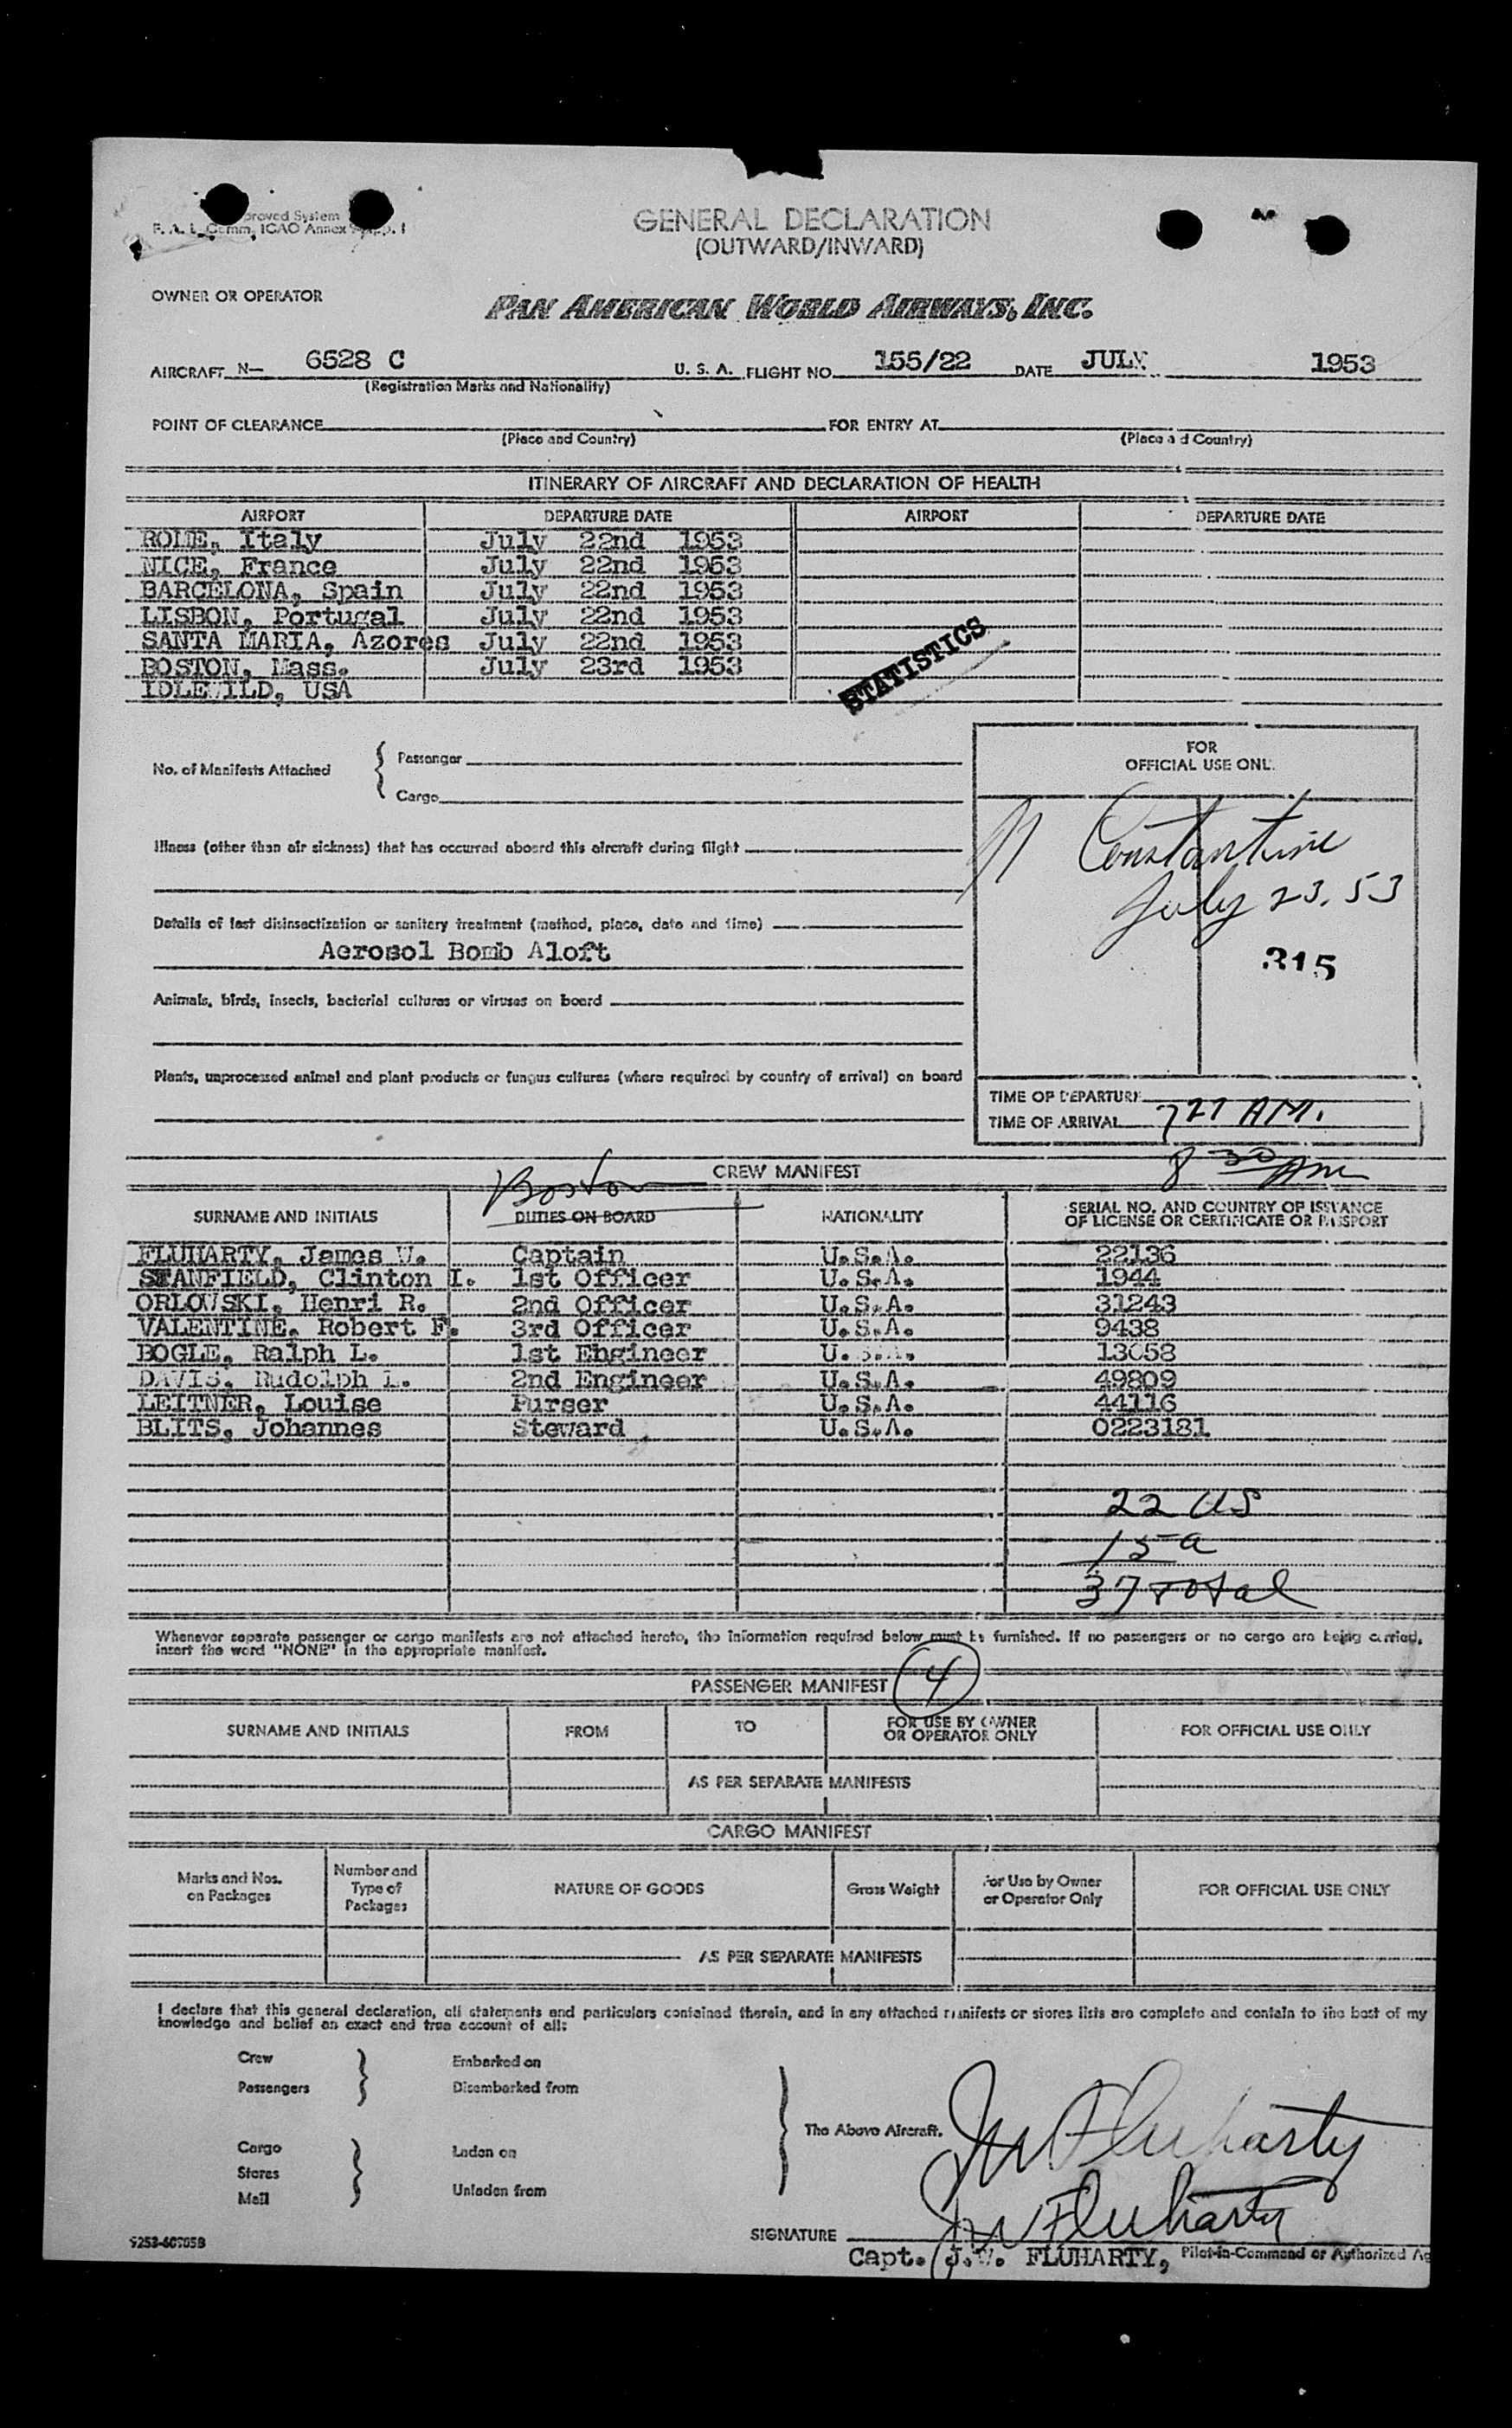 proved System
F. A. L. Comm, ICAO Annex
GENERAL DECLARATION
(OUTWARD/INWARD)
OWNER OR OPERATOR
PAN AMERICAN WORLD AIRWAYS, INC.
AIRCRAFT N— 6528 C U. S. A. FLIGHT NO. 155/22 DATE JULY 1953
(Registration Marks and Nationality)
POINT OF CLEARANCE FOR ENTRY AT
(Place and Country) (Place a d Country)
ITINERARY OF AIRCRAFT AND DECLARATION OF HEALTH
AIRPORT DEPARTURE DATE AIRPORT DEPARTURE DATE
ROME, Italy July 22nd 1953
NICE, France July 22nd 1953
BARCELONA, Spain July 22nd 1953
LISBON, Portugal July 22nd 1953
SANTA MARIA, Azores July 22nd 1953
BOSTON, Mass. July 23rd 1953
IDLEWILD, USA
STATISTICS
No. of Manifests Attached { Passenger
Cargo
FOR
OFFICIAL USE ONL
Illness (other than air sickness) that has occurred aboard this aircraft during flight
Constantine
July 23. 53
315
Details of last disinsectization or sanitary treatment (method, place, date and time)
Aerosol Bomb Aloft
Animals, birds, insects, bacterial cultures or viruses on board
Plants, unprocessed animal and plant products or fungus cultures (where required by country of arrival) on board
TIME OF DEPARTURE
TIME OF ARRIVAL 727 AM.
8 30 AM
Boston
CREW MANIFEST
SURNAME AND INITIALS DUTIES ON BOARD NATIONALITY SERIAL NO. AND COUNTRY OF ISSUANCE
OF LICENSE OR CERTIFICATE OR PASSPORT
FLUHARTY, James W. Captain U.S.A. 22136
STANFIELD, Clinton I. 1st Officer U.S.A. 1944
ORLOWSKI, Henri R. 2nd Officer U.S.A. 31243
VALENTINE, Robert F. 3rd Officer U.S.A. 9438
BOGLE, Ralph L. 1st Ebgineer U.S.A. 13058
DAVIS, Rudolph L. 2nd Engineer U.S.A. 49809
LEITNER, Louise Purser U.S.A. 44116
BLITS, Johannes Steward U.S.A. 0223181
22 US
15 a
37 Total
Whenever separate passenger or cargo manifests are not attached hereto, the information required below must be furnished. If no passengers or no cargo are being carried,
insert the word "NONE" in the appropriate manifest.
PASSENGER MANIFEST 4
SURNAME AND INITIALS FROM TO FOR USE BY OWNER
OR OPERATOR ONLY FOR OFFICIAL USE ONLY
AS PER SEPARATE MANIFESTS
CARGO MANIFEST
Marks and Nos.
on Packages
Number and
Type of
Packages
NATURE OF GOODS
Gross Weight
For Use by Owner
or Operator Only
FOR OFFICIAL USE ONLY
AS PER SEPARATE MANIFESTS
I declare that this general declaration, all statements and particulars contained therein, and in any attached manifests or stores lists are complete and contain to the best of my
knowledge and belief an exact and true account of all:
Crew
Passengers
Embarked on
Disembarked from
Cargo
Stores
Mail
Laden on
Unladen from
The Above Aircraft.
JW Fluharty
SIGNATURE JW Fluharty
Capt. J.W. FLUHARTY, Pilot-in-Command or Authorized Ag